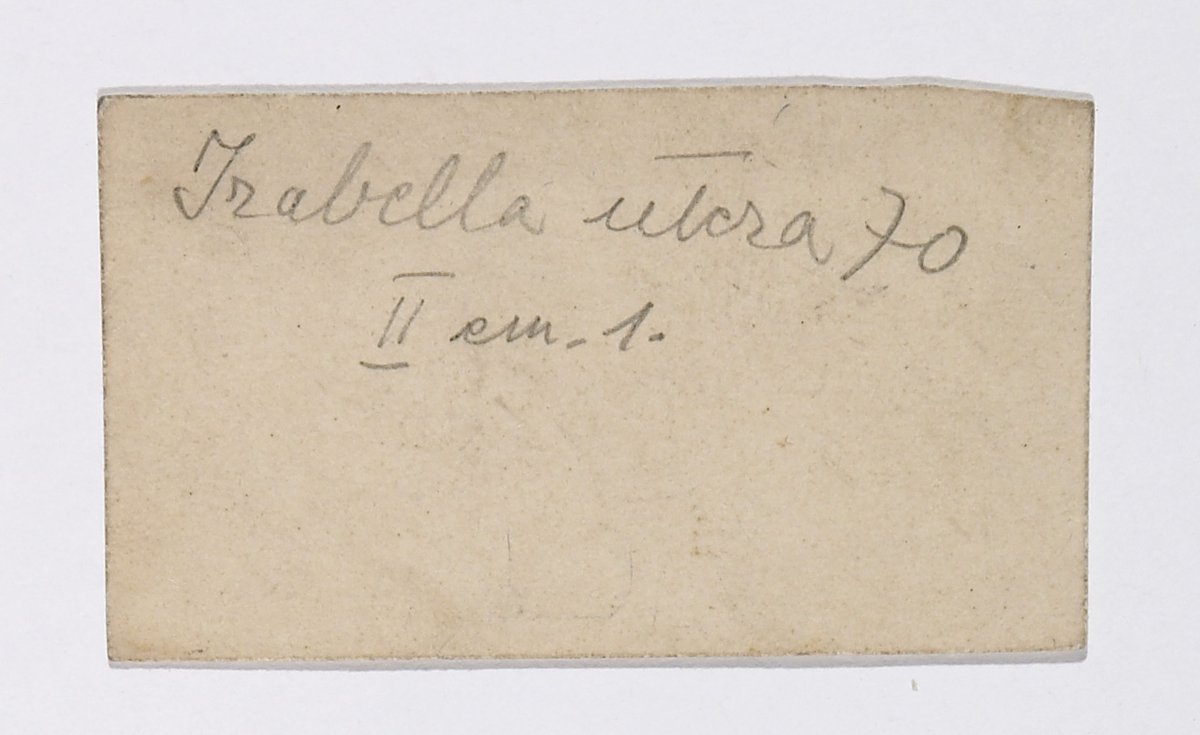 Izabella utcza 70
II em. 1.